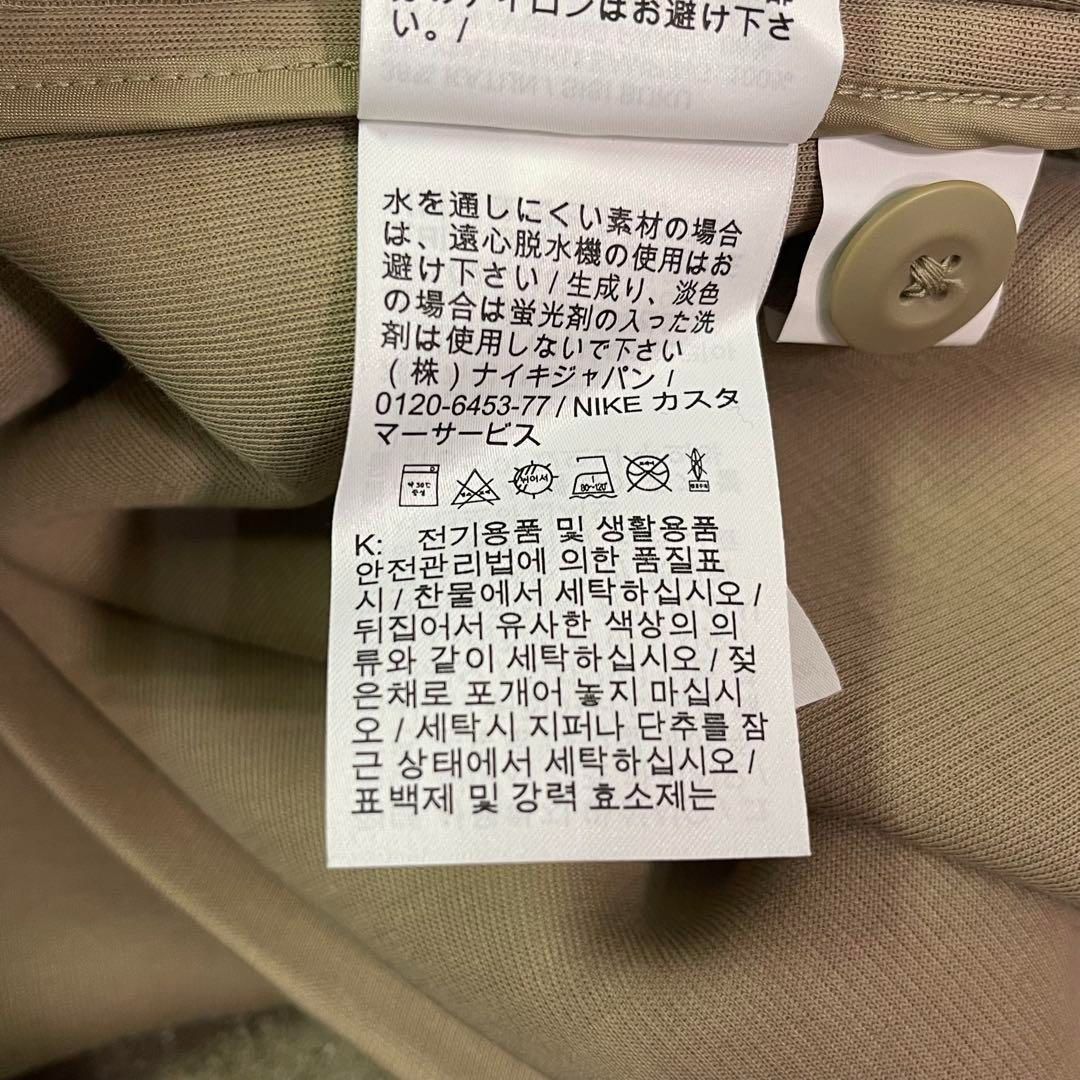 ナイロンはお避け下さ
い。/
水を通しにくい素材の場合
は、遠心脱水機の使用はお
避け下さい / 生成り、淡色
の場合は蛍光剤の入った洗
剤は使用しないで下さい
(株) ナイキジャパン /
0120-6453-77 / NIKE カスタ
マーサービス
약 30℃
중성
80~120℃
K: 전기용품 및 생활용품
안전관리법에 의한 품질표
시 / 찬물에서 세탁하십시오 /
뒤집어서 유사한 색상의 의
류와 같이 세탁하십시오 / 젖
은채로 포개어 놓지 마십시
오 / 세탁시 지퍼나 단추를 잠
근 상태에서 세탁하십시오 /
표백제 및 강력 효소제는